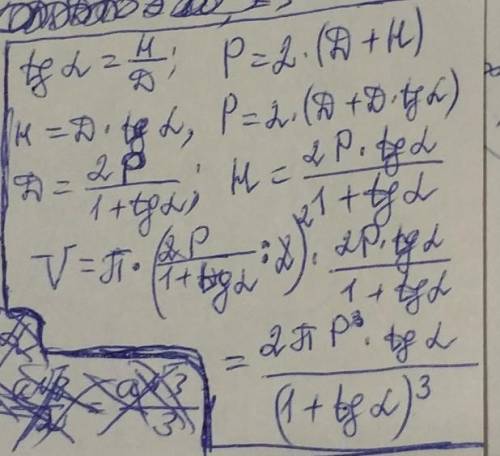 tg α = H/D; P = 2·(D + H)
H = D·tg α, P = 2·(D + D·tg α)
D = 2P/(1 + tg α); H = 2P·tg α/(1 + tg α)
V = π·(2P/(1 + tg α) : 2)²·2P·tg α/(1 + tg α)
= 2πP³·tg α/(1 + tg α)³